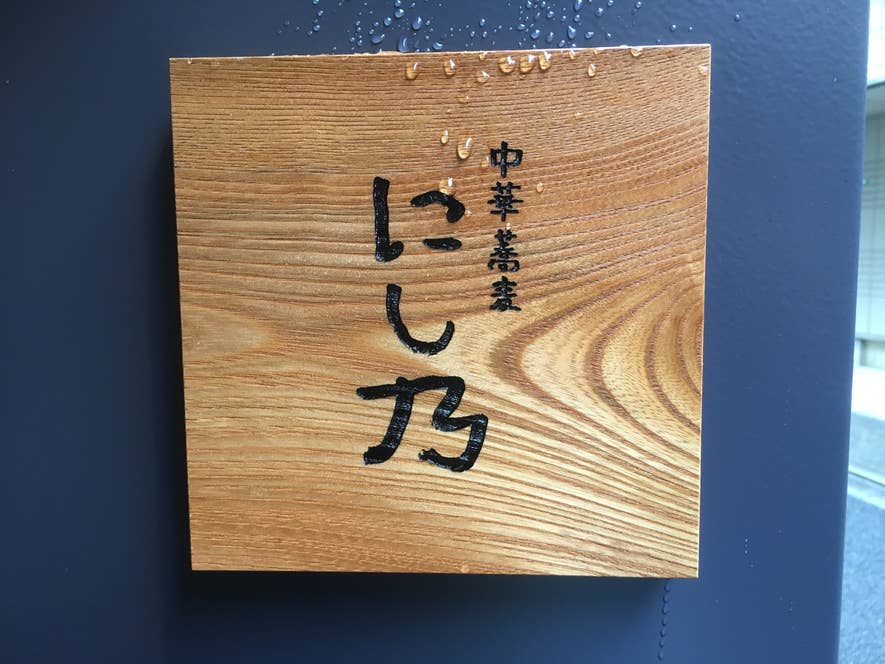 中華蕎麦
にし乃